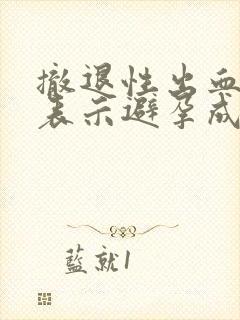 撤退性出血
表示避孕成
藍就1